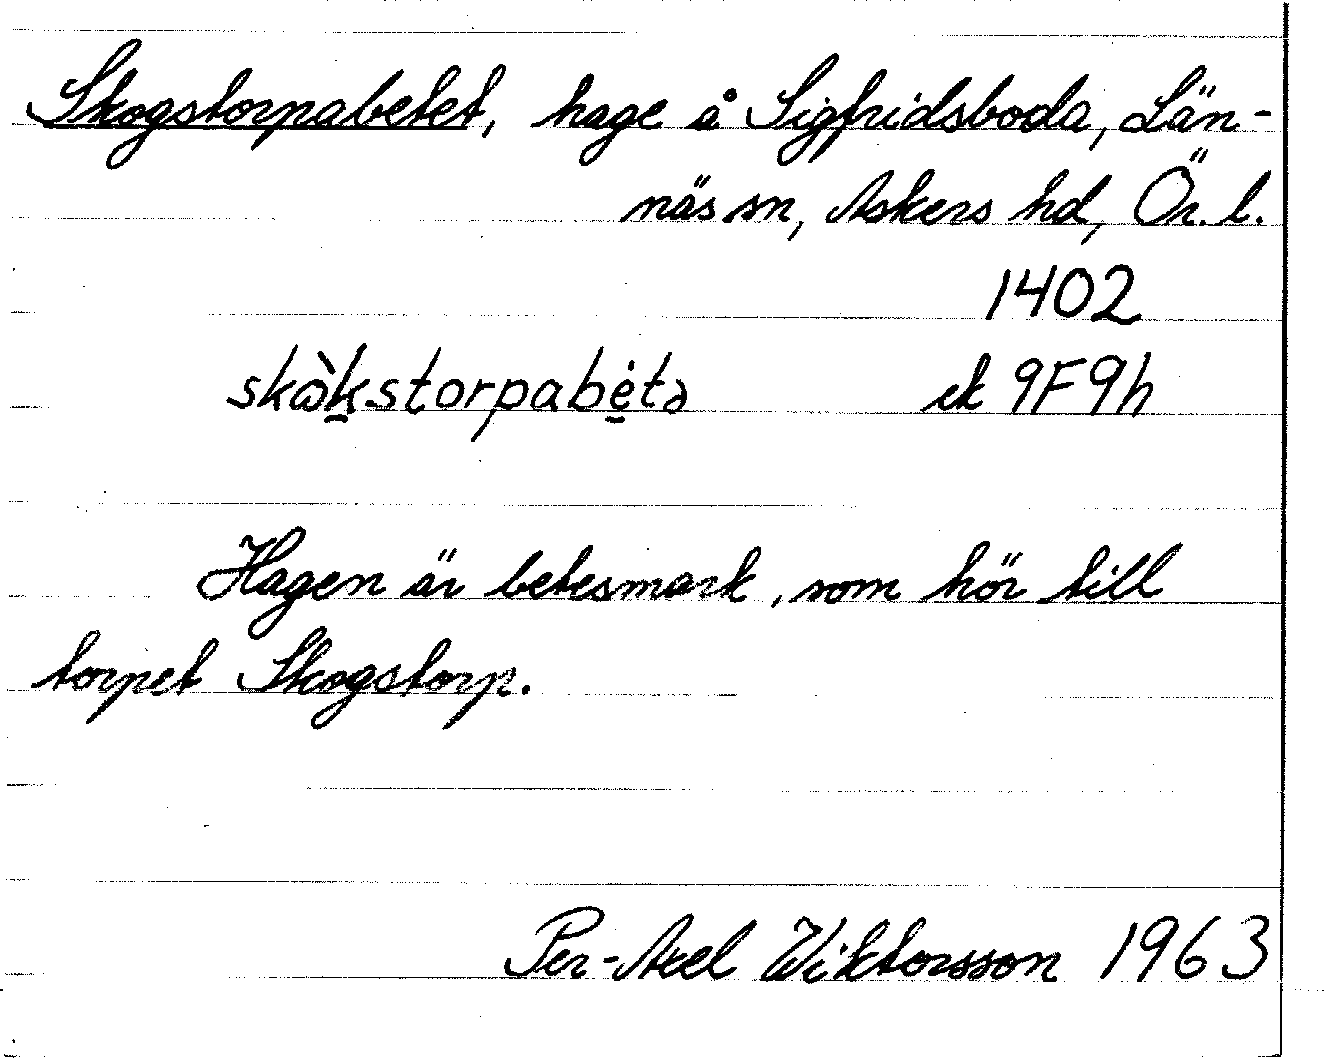 Skogstorpabetet, hage å Sigfridsboda, Län-
näs sn, Askers hd, Ör. l.
1402
skὼk̠storpabė̠tə ek 9F9h
Hagen är betesmark, som hör till
torpet Skogstorp.
Per-Axel Wiktorsson 1963